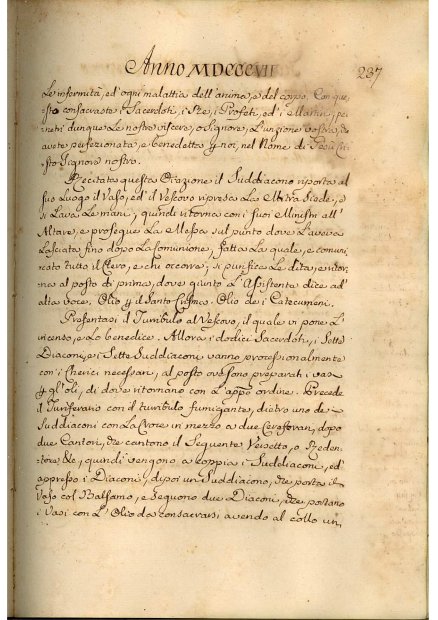 Anno MDCCCVII 237
Le infermità, ed'ogni malattia dell'anima, e del corpo. Con que-
sto consacraste i Sacerdoti, i Re, i Profeti, ed' i Martiri, pe-
netri dunque Le nostre viscere, o Signore, L'unzione vostra, da
avete perfezionata, e benedetta p noi, nel Nome di Gesù Cri-
sto Signore nostro.
Recitata questa Orazione il Suddiacono riporta al
suo Luogo il Vaso, ed' il Vescovo ripresa La Mitra siede, e
si Lava Le mani, quindi ritorna con i suoi Ministri all'
Altare, e prosegue La Messa sul punto dove L'aveva
Lasciata fino dopo La Comunione, fatta La quale, e comuni-
cato tutto il Clero, e chi occorre, si purifica Le dita, e ritor-
na al posto di prima, dove giunto L'Assistente dice ad
alta voce. Olio p il Santo Crisma. Olio dei Catecumeni.
Presentasi il Turibulo al Vescovo, il quale vi pone L'
incenso, e Lo benedice. Allora i dodici Sacerdoti, i Sette
Diaconi, e i Sette Suddiaconi vanno processionalmente
con i Cherici necessari, al posto ove sono preparati i vasi
p gl'Oli, di dove ritornano con L'app.o ordine. Precede
il Turiferario con il turibulo fumigante, dietro uno de
Suddiaconi con La Croce in mezzo a due Ceroferari, dopo
due Cantori, che cantono il Seguente Versetto, o Reden-
tore &c, quindi vengono a coppia i Suddiaconi, ed'
appresso i Diaconi, dipoi un Suddiacono, che porta il
Vaso col Balsamo, e seguono due Diaconi, che portano
i Vasi con L'Olio da consacrarsi avendo al collo un